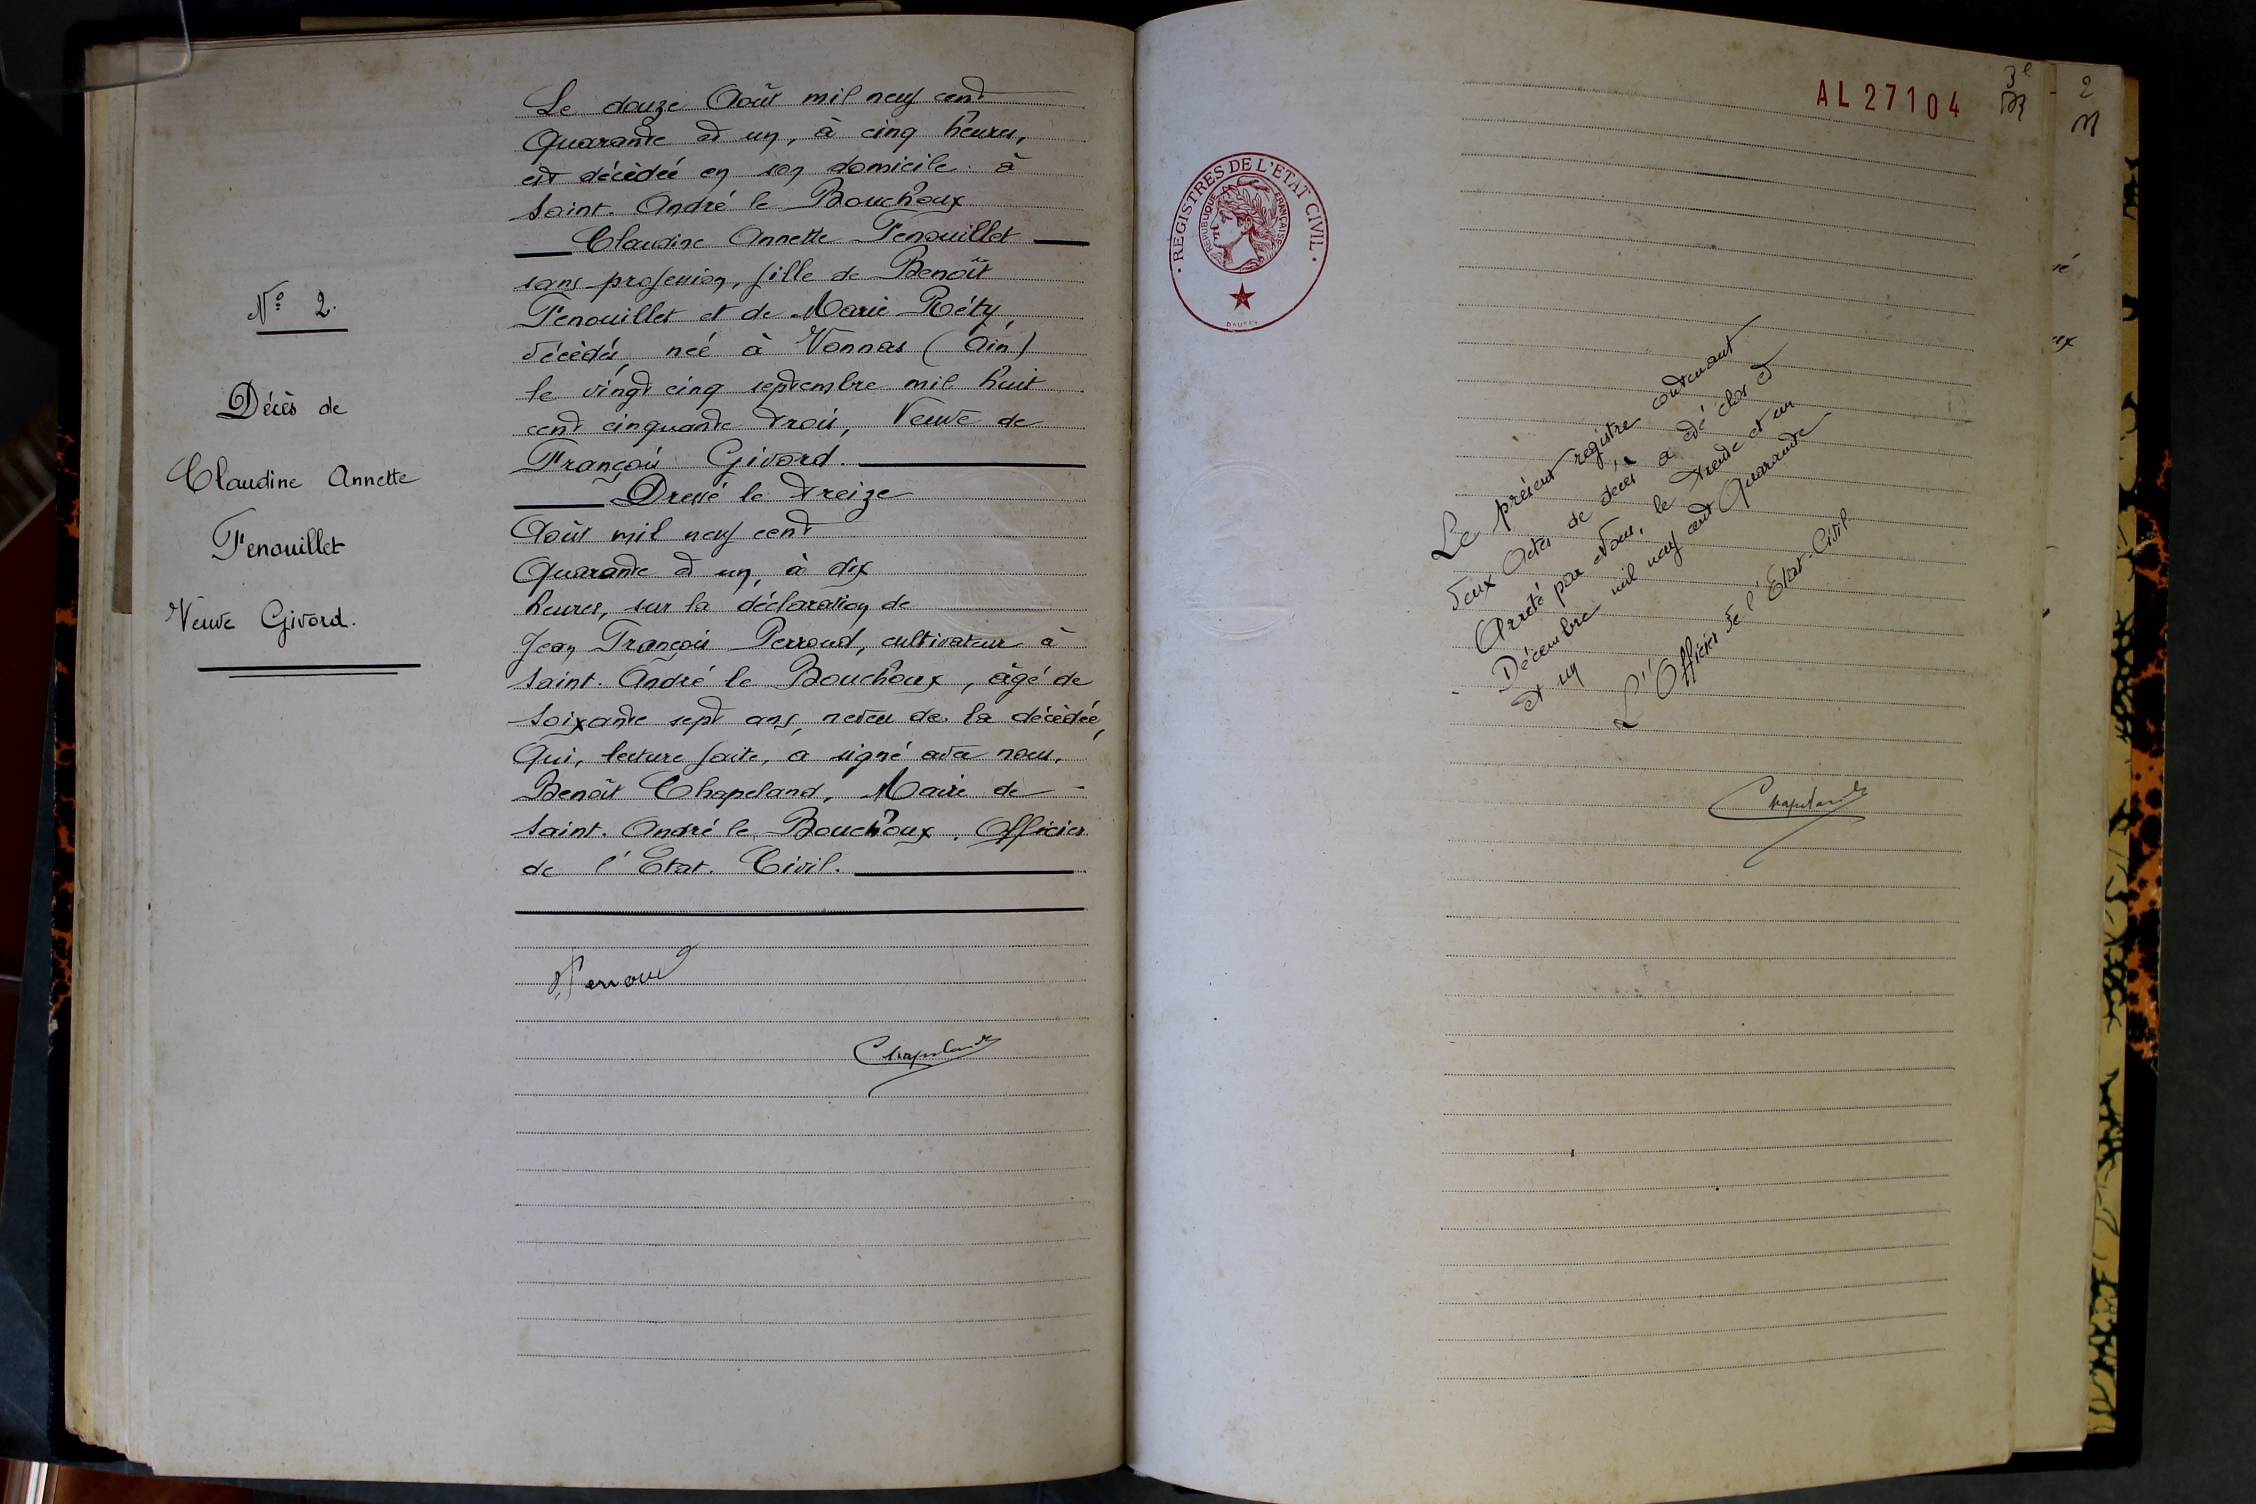 N° 2.
Décès de
Claudine Annette
Fenouillet
Veuve Givord.
Le douze Août mil neuf cent
Quarante et un, à cinq heures,
est décédée en son domicile à
Saint. André le Bouchoux
Claudine Annette Fenouillet
sans profession, fille de Benoît
Fenouillet et de Marie Réty,
décédés, née à Vonnas (Ain)
le vingt cinq septembre mil huit
cent cinquante trois, Veuve de
François Givord.
Dressé le treize
Août mil neuf cent
Quarante et un, à dix
heures, sur la déclaration de
Jean François Perroud, cultivateur à
Saint. André le Bouchoux, âgé de
soixante sept ans, neveu de la décèdée,
Qui, lecture faite, a signé avec nous,
Benoît Chapeland, Maire de
Saint. André le Bouchoux. Officier
de l'Etat. Civil.
Perroud
Chapeland
AL27104
3e
2
REGISTRES DE L'ETAT CIVIL
REPUBLIQUE FRANÇAISE
Le présent registre contenant
deux Actes de décès a été clos et
Arreté par Nous, le trente et un
Décembre mil neuf cent Quarante
et un
L'Officier de l'Etat-Civil
Chapeland